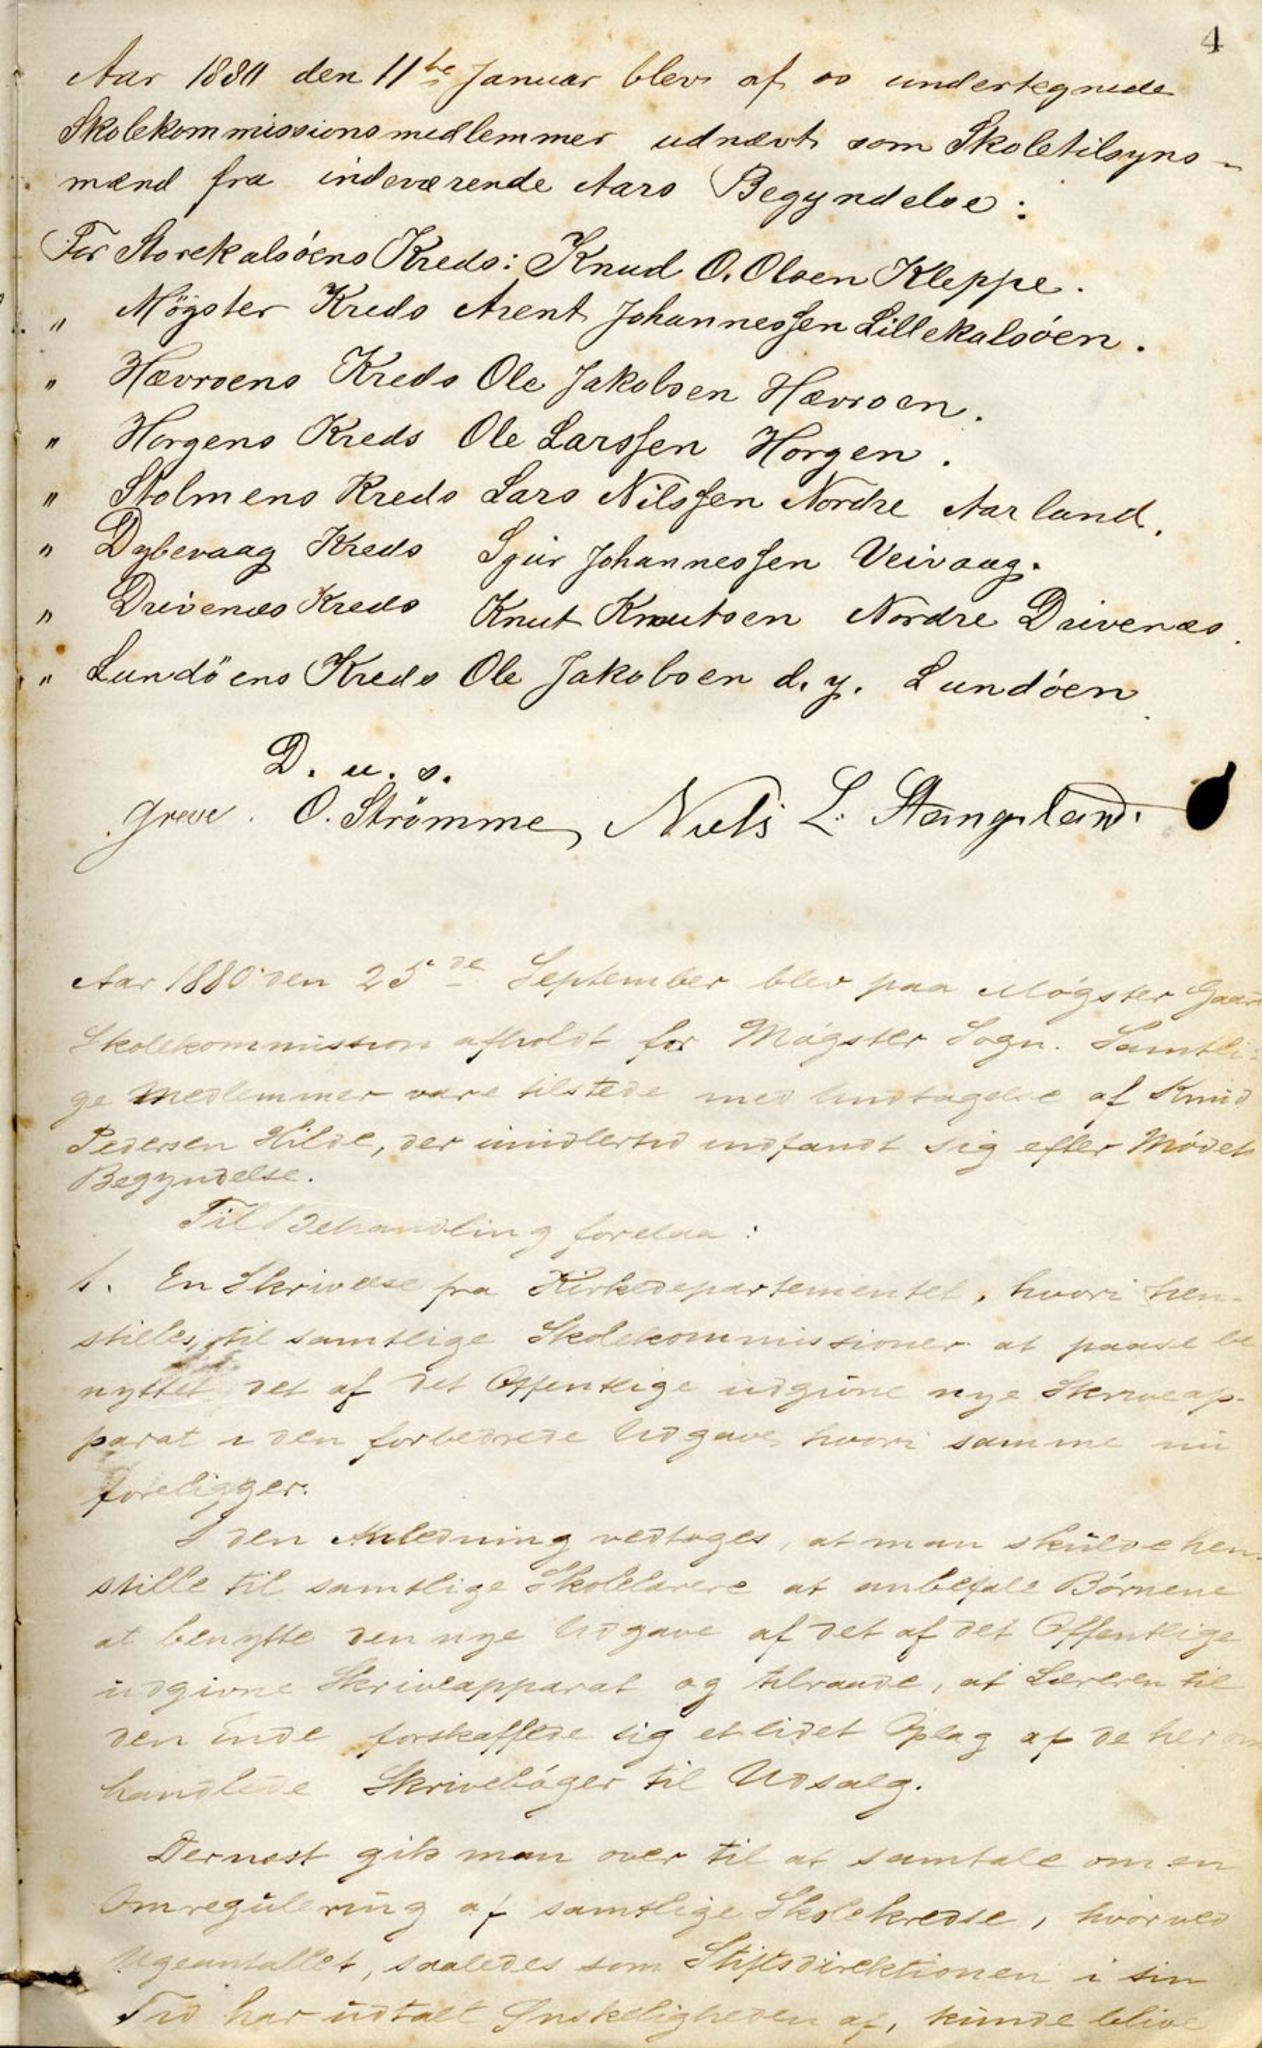 4
Aar 1880 den 11te Januar blev af os undertegnede
Skolekommissionsmedlemmer udnævt som Skoletilsyns-
mænd fra indeværende Aars Begyndelse:
For Storekalsöens Kreds: Knud O. Olsen Kleppe.
" Mögster Kreds Arent Johannessen Lillekalsöen.
" Hævröens Kreds Ole Jakobsen Hævröen.
" Horgens Kreds Ole Larssen Horgen.
" Stolmens Kreds Lars Nilssen Nordre Aarland.
" Dybevaag Kreds Sjur Johannessen Veivaag.
" Drivenæs Kreds Knut Knutsen Nordre Drivenæs.
" Lundöens Kreds Ole Jakobsen d. y. Lundöen
D. u. s.
Greve. O. Strömme, Niels L. Stangeland.
Aar 1880 den 25de September blev paa Møgster Gaard
Skolekommission afholdt for Møgster Sogn. Samtli-
ge Medlemmer vare tilstede med Undtagelse af Knud
Pedersen Hilde, der imidlertid indfandt sig efter Mødets
Begyndelse.
Til Behandling forelaa:
1. En Skrivelse fra Kirkedepartementet, hvori hen-
stilles til samtlige Skolekommissioner at paase be
nyttet det af det Offentlige udgivne nye Skriveap-
parat i den forbedrede Udgave, hvori samme nu
foreligger.
I den Anledning vedtoges, at man skulde hen-
stille til samtlige Skolelærere at anbefale Børnene
at benytte den nye Udgave af det af det Offentlige
udgivne Skriveapparat og tilraade, at Læreren til
den Ende forskaffede sig et lidet Oplag af de her om
handlede Skrivebøger til Udsalg.
Dernæst gik man over til at samtale om en
Omregulering af samtlige Skolekredse, hvorved
Ugeantallet, saaledes som Stiftsdirektionen i sin
Tid har udtalt Ønskeligheden af, kunde blive